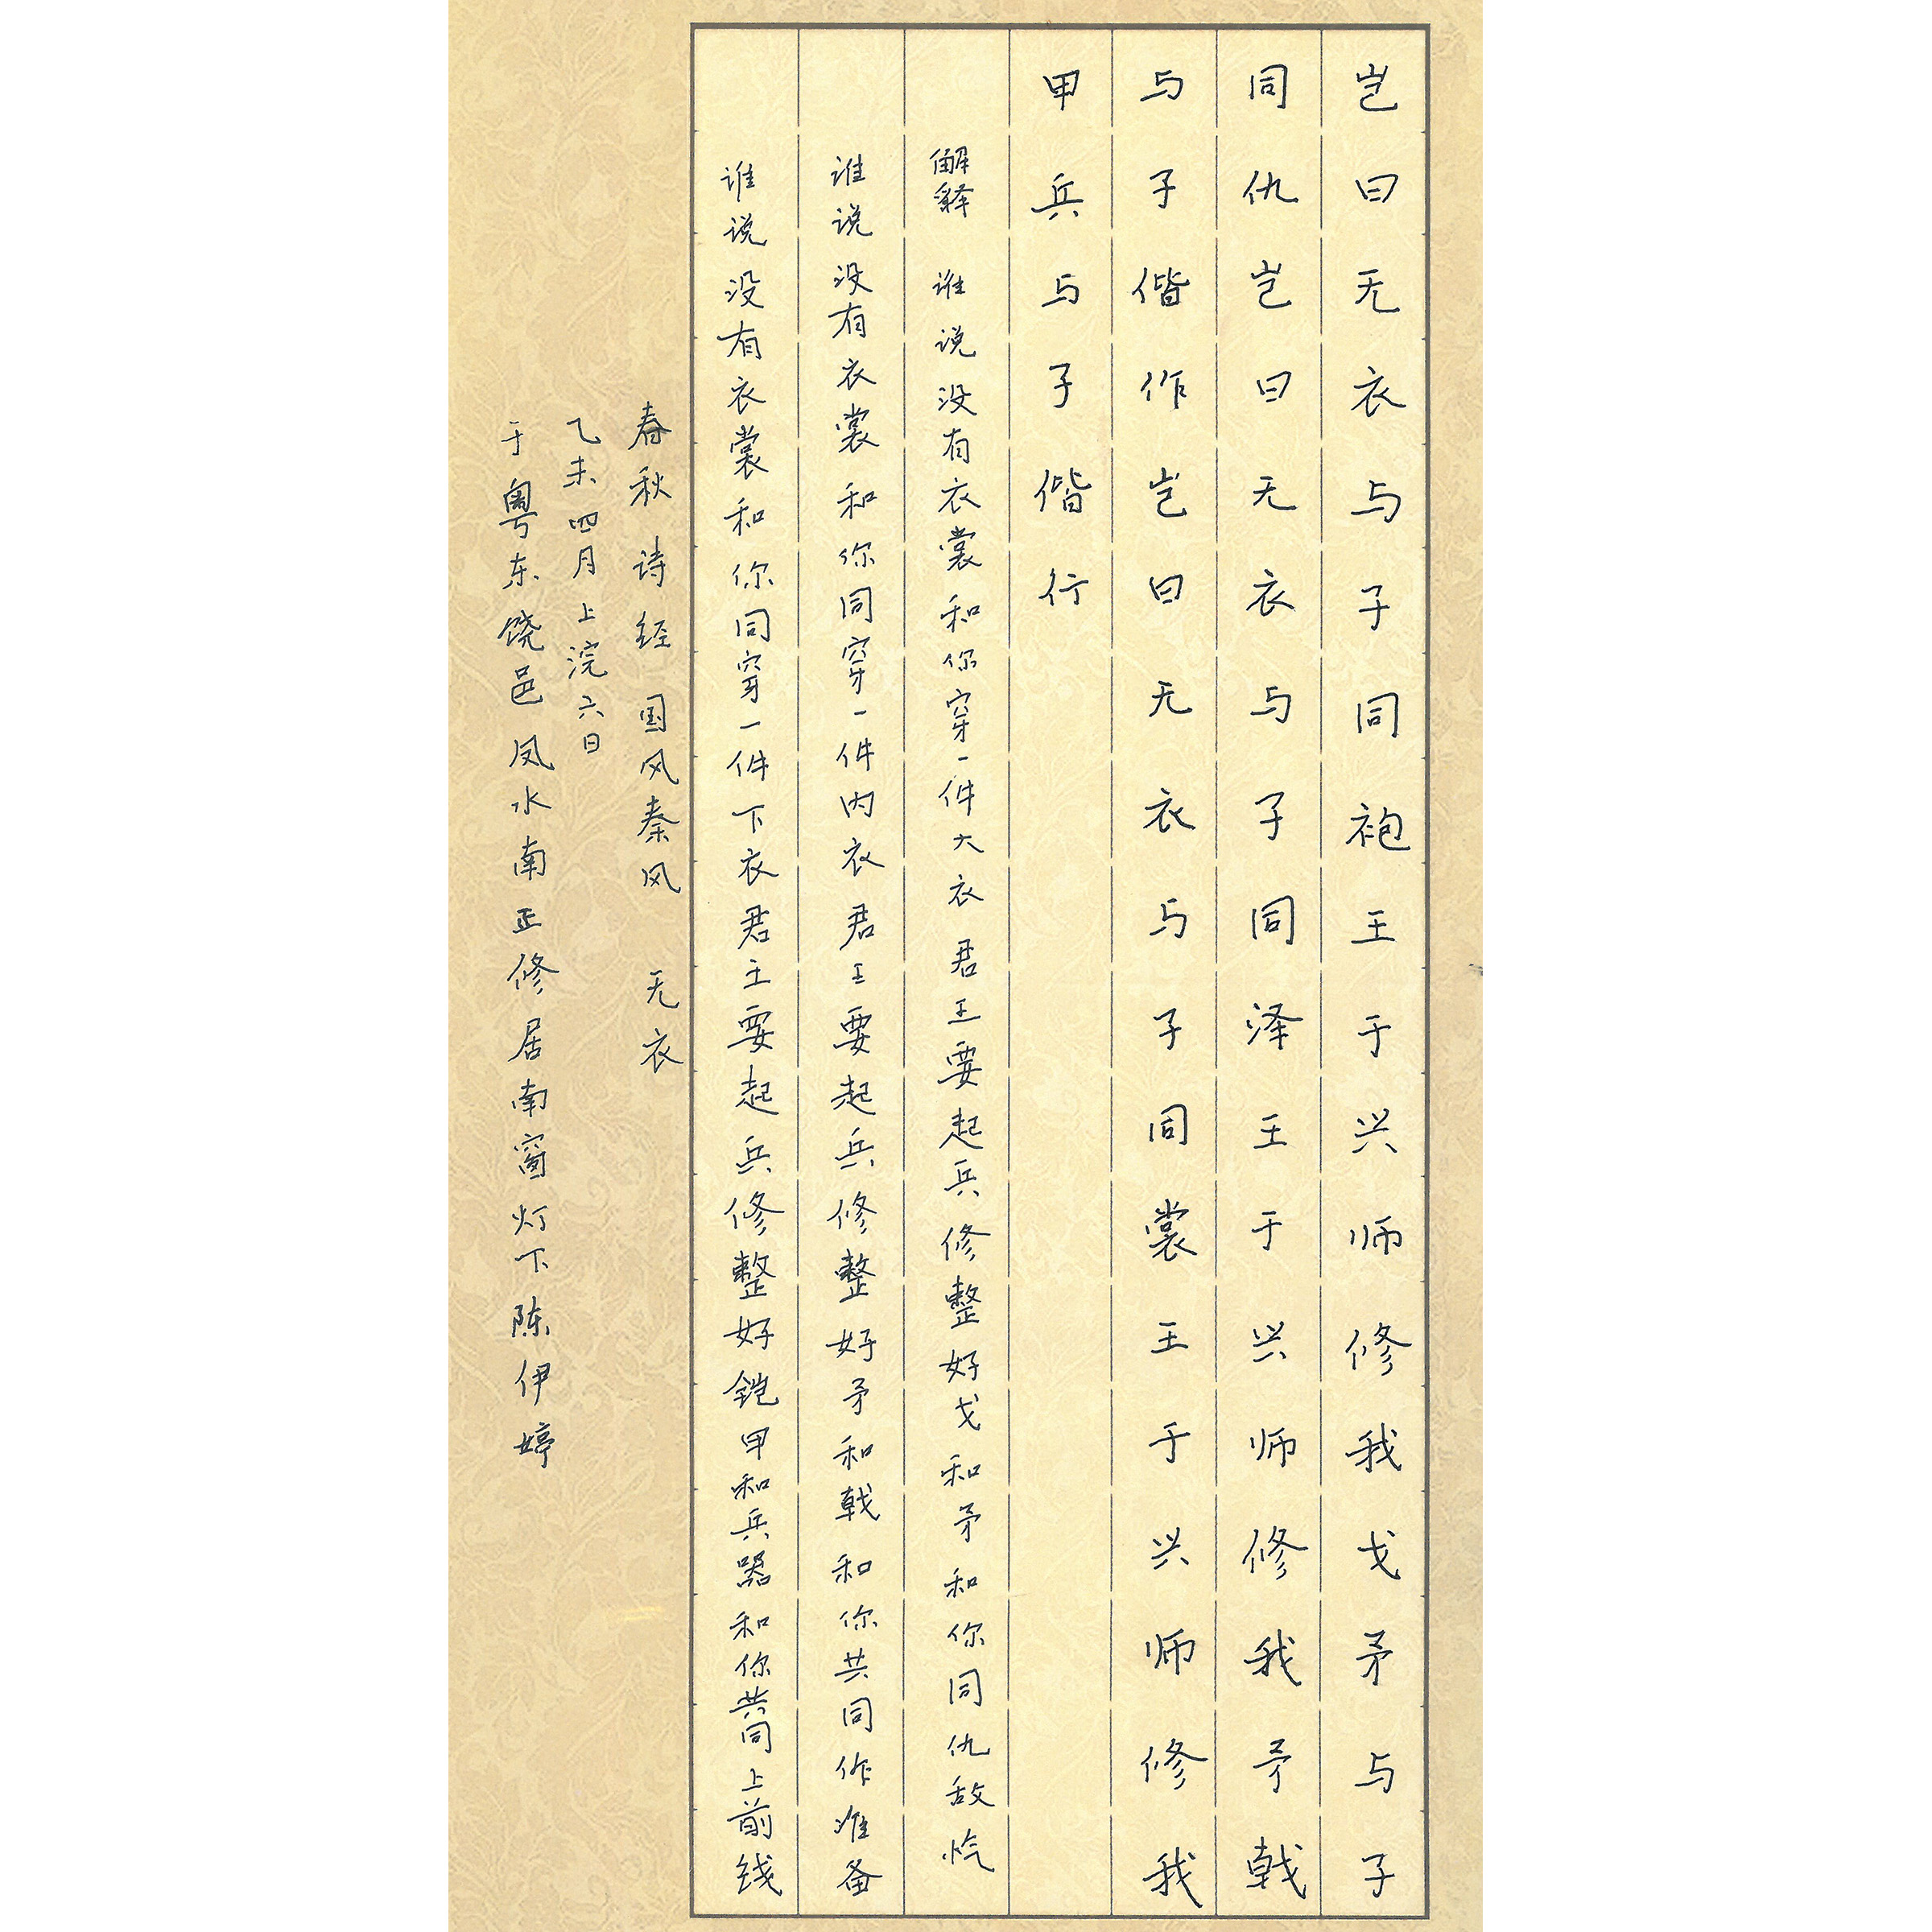 岂曰无衣与子同袍王于兴师修我戈矛与子
同仇岂曰无衣与子同泽王于兴师修我矛戟
与子偕作岂曰无衣与子同裳王于兴师修我
甲兵与子偕行
解释 谁说没有衣裳和你穿一件大衣君王要起兵修整好戈和矛和你同仇敌忾
谁说没有衣裳和你同穿一件内衣君王要起兵修整好矛和戟和你共同作准备
谁说没有衣裳和你同穿一件下衣君王要起兵修整好铠甲和兵器和你共同上前线
春秋 诗经 国风秦风 无衣
乙未四月上浣六日
于粤东饶邑凤水南正修居南窗灯下陈伊婷